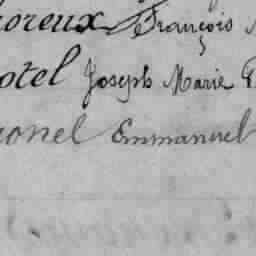 oreux François
otel Joseph Marie
onel Emmanuel